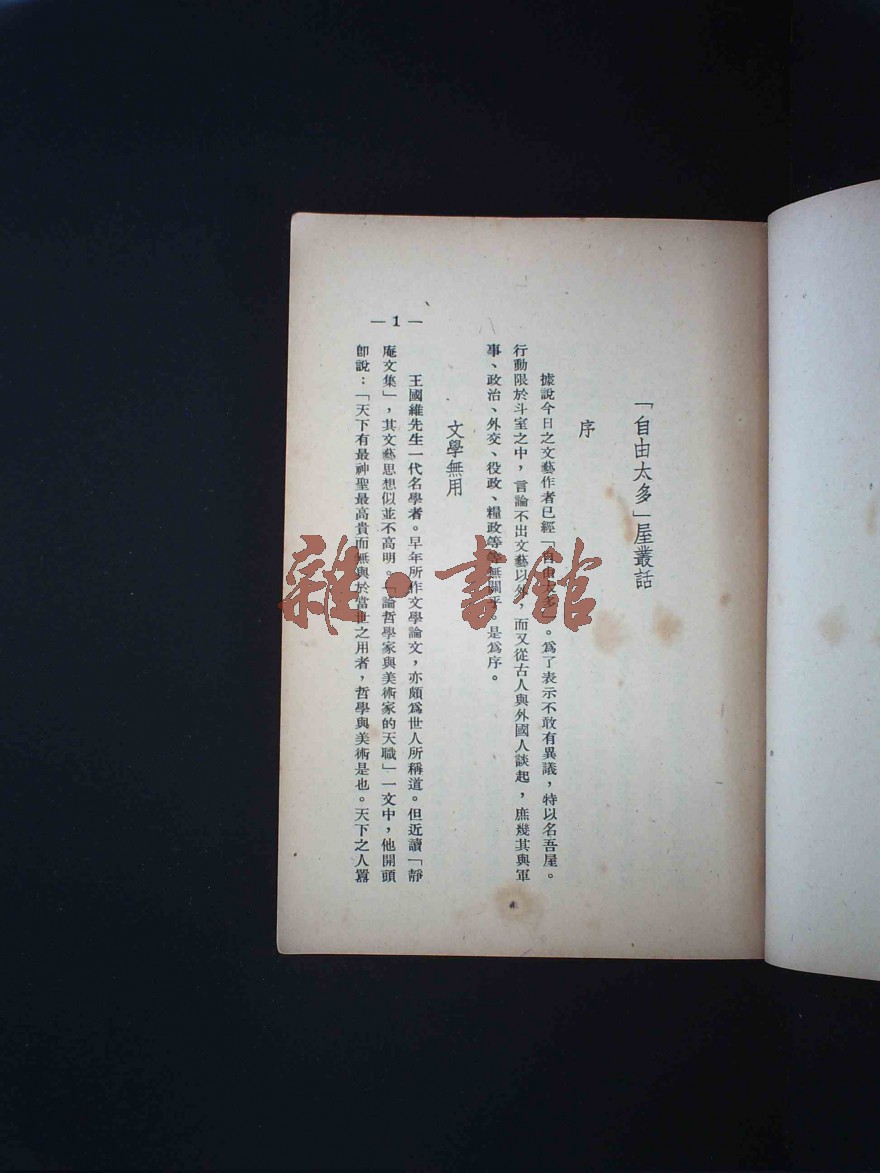 「自由太多」屋叢話
序
據說今日之文藝作者已經「自由太多」。爲了表示不敢有異議，特以名吾屋。
行動限於斗室之中，言論不出文藝以外，而又從古人與外國人談起，庶幾其與軍
事、政治、外交、役政、糧政等等無關乎。是爲序。
文學無用
王國維先生一代名學者。早年所作文學論文，亦頗爲世人所稱道。但近讀「靜
庵文集」，其文藝思想似並不高明。「論哲學家與美術家的天職」一文中，他開頭
卽說：「天下有最神聖最高貴而無與於當世之用者，哲學與美術是也。天下之人囂
— 1 —
雜·書館